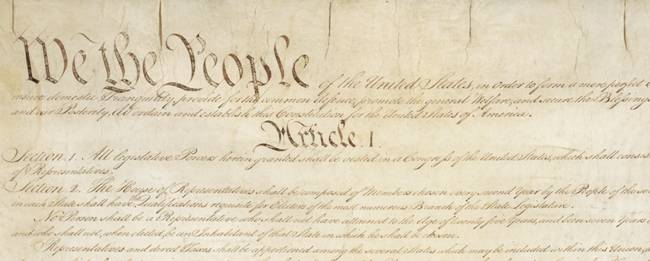 We the People of the United States, in Order to form a more perfect
insure domestic Tranquility, provide for the common defence, promote the general Welfare, and secure the Blessings
and our Posterity, do ordain and establish this Constitution for the United States of America.
Article. I.
Section. 1. All legislative Powers herein granted shall be vested in a Congress of the United States, which shall consist
of Representatives.
Section. 2. The House of Representatives shall be composed of Members chosen every second Year by the People of the several
in each State shall have Qualifications requisite for Electors of the most numerous Branch of the State Legislature.
No Person shall be a Representative who shall not have attained to the Age of twenty five Years, and been seven Years
and who shall not, when elected, be an Inhabitant of that State in which he shall be chosen.
Representatives and direct Taxes shall be apportioned among the several States which may be included within this Union,